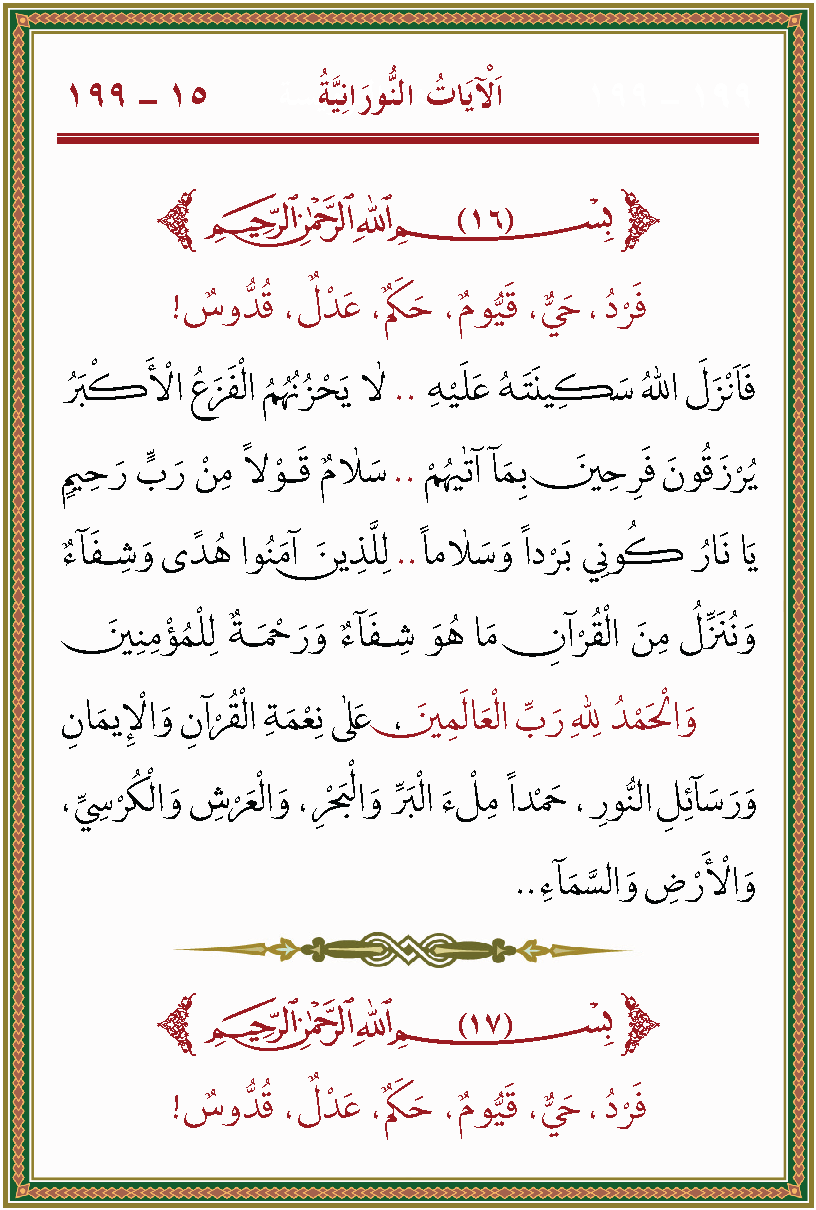 اَلْآيَاتُ النُّورَانِيَّةُ ١٥ – ١٩٩
بِسْمِ اللهِ الرَّحْمٰنِ الرَّحِيمِ (١٦)
فَرْدُ، حَيٌّ، قَيُّومٌ، حَكَمٌ، عَدْلٌ، قُدُّوسٌ!
فَاَنْزَلَ اللهُ سَكِينَتَهُ عَلَيْهِ .. لٰا يَحْزُنُهُمُ الْفَزَعُ الْأَكْبَرُ
يُرْزَقُونَ فَرِحِينَ بِمَآ آتٰيهُمْ .. سَلٰامٌ قَوْلاً مِنْ رَبٍّ رَحِيمٍ
يَا نَارُ كُونِي بَرْداً وَسَلٰاماً .. لِلَّذِينَ آمَنُوا هُدًى وَشِفَآءٌ
وَنُنَزِّلُ مِنَ الْقُرْآنِ مَا هُوَ شِفَآءٌ وَرَحْمَةٌ لِلْمُؤْمِنِينَ
وَالْحَمْدُ لِلهِ رَبِّ الْعَالَمِينَ، عَلٰى نِعْمَةِ الْقُرْآنِ وَالْإِيمَانِ
وَرَسَآئِلِ النُّورِ، حَمْداً مِلْءَ الْبَرِّ وَالْبَحْرِ، وَالْعَرْشِ وَالْكُرْسِيِّ،
وَالْأَرْضِ وَالسَّمَآءِ..
بِسْمِ اللهِ الرَّحْمٰنِ الرَّحِيمِ (١٧)
فَرْدُ، حَيٌّ، قَيُّومٌ، حَكَمٌ، عَدْلٌ، قُدُّوسٌ!